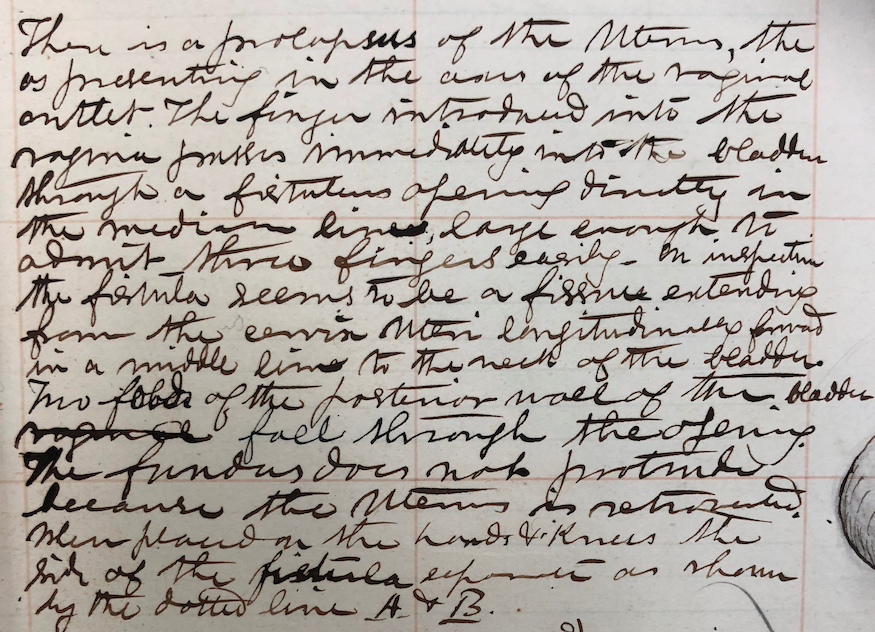 There is a prolapsus of the Uterus, the
os presenting in the axis of the vaginal
outlet. The finger introduced into the
vagina passes immediately into the bladder
through a fistulous opening directly in
the median line, large enough to
admit three fingers easily - On inspection
the fistula seems to be a fissure extending
from the cervix Uteri longitudinally forward
in a middle line to the neck of the bladder.
Two folds of the posterior wall of the bladder
fall through the opening.
The fundus does not protrude
because the Uterus is retroverted.
When placed on the hands & Knees the
side of the fistula as shown
by the dotted line A & B.